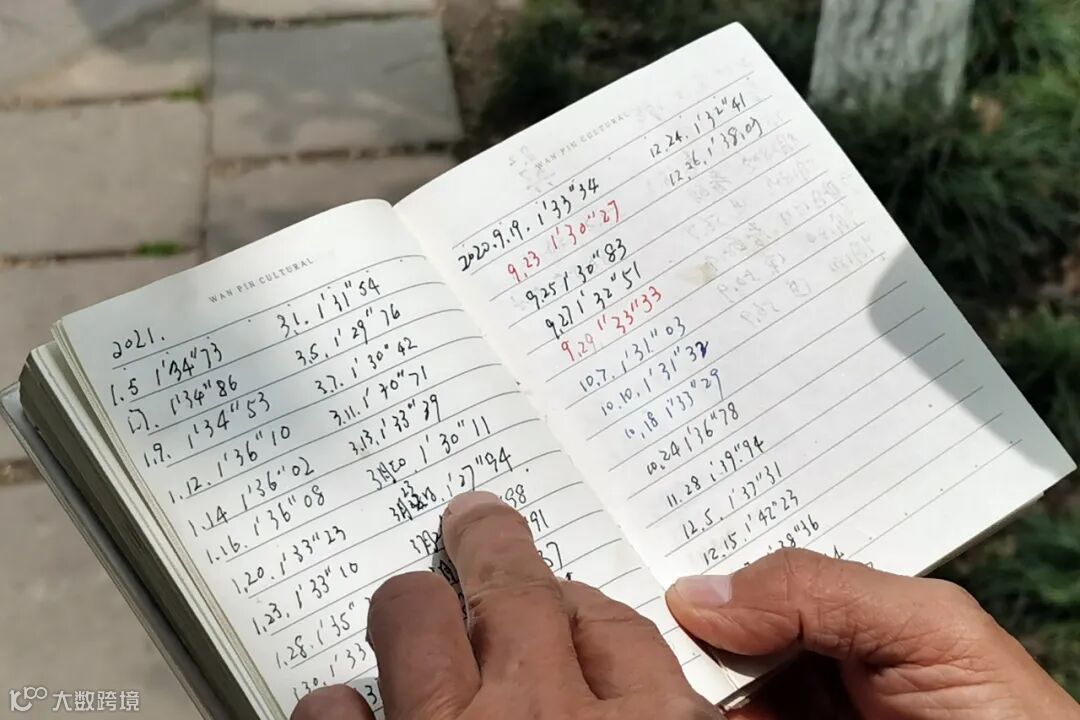 WAN PIN CULTURAL
2021.
1.5 1'34"73
1'34"86
1.9. 1'34"53
1.12. 1'36"10
1.14 1'36"02
1.16. 1'36"08
1.20. 1'33"23
1.23. 1'33"10
1.28. 1'35"
1.30. 1'33
3.1. 1'31"54
3.5. 1'29"76
3.7. 1'30"42
3.11. 1'30"71
3.13. 1'33"39
3月20. 1'30"11
1'27"94
3月2
88
91
37
WAN PIN CULTURAL
2020.9.9. 1'33"34
9.23 1'30"27
9.25 1'30"83
9.27 1'32"51
9.29. 1'33"33
10.7. 1'31"03
10.10. 1'31"32
10.18 1'33"29
10.24 1'36"78
11.28 1'39"94
12.5. 1'37"31
12.15. 1'42"23
12.24. 1'32"41
12.26. 1'38.09
大数跨境